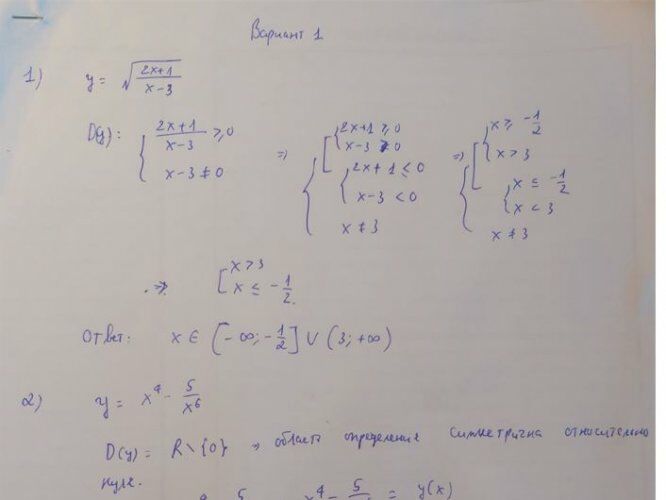 Вариант 1
1) y = √((2x+1)/(x-3))
D(y): { (2x+1)/(x-3) ≥ 0 ; x-3 ≠ 0 ⇒ { [ { 2x+1 ≥ 0 ; x-3 > 0 ; { 2x+1 ≤ 0 ; x-3 < 0 ; x ≠ 3 ⇒ { [ { x ≥ -1/2 ; x > 3 ; { x ≤ -1/2 ; x < 3 ; x ≠ 3
⇒ [ x > 3 ; x ≤ -1/2.
Ответ: x ∈ [-∞; -1/2] ∪ (3; +∞)
2) y = x⁴ - 5/x⁶
D(y) = R \ {0} ⇒ область определения симметрична относительно
нуля.
= y(x)